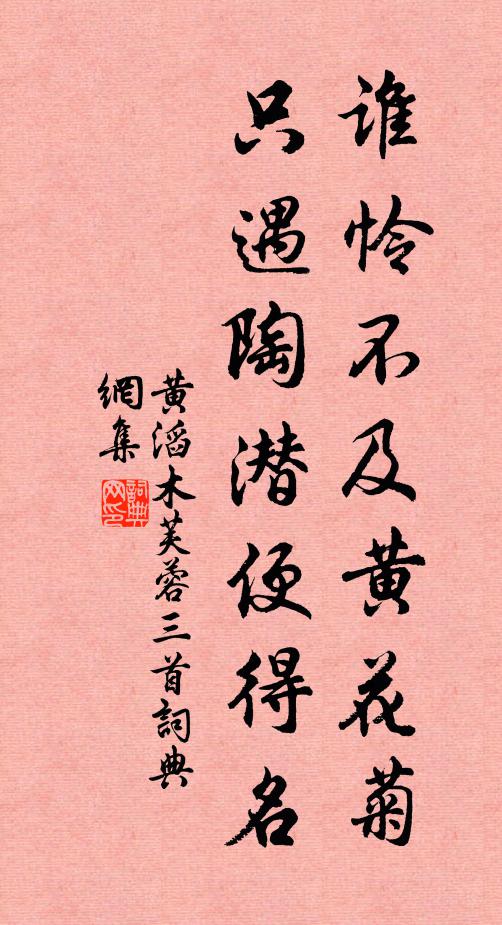 谁怜不及黄花菊
只遇陶潜便得名
黄滔木芙蓉三首詞典
網集
詞典
网印